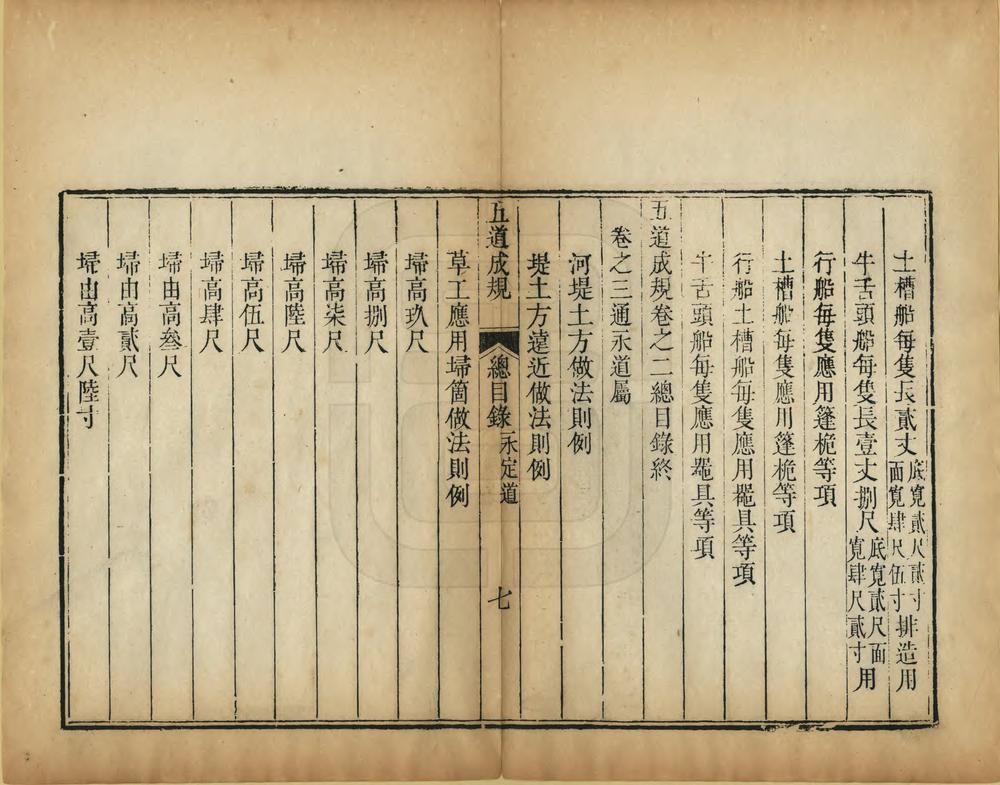 土槽船每隻長貳丈底寬貳尺貳寸面寬肆尺伍寸排造用
牛舌頭船每隻長壹丈捌尺底寬貳尺面寬肆尺貳寸用
行船每隻應用篷桅等項
土槽船每隻應用篷桅等項
行船土槽船每隻應用噐具等項
牛舌頭船每隻應用噐具等項
五道成規卷之二總目錄終
卷之三通永道屬
河堤土方做法則例
堤土方遠近做法則例
五道成規 總目錄 永定道 七
草工應用埽箇做法則例
埽高玖尺
埽高捌尺
埽高柒尺
埽高陸尺
埽高伍尺
埽高肆尺
埽由高叁尺
埽由高貳尺
埽由高壹尺陸寸